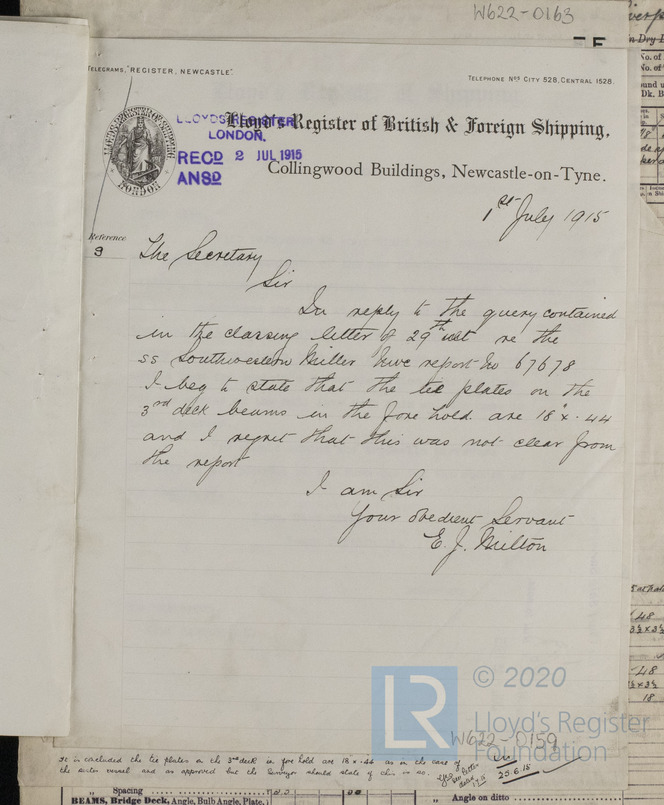 W622-0163
TELEGRAMS, "REGISTER, NEWCASTLE".
TELEPHONE Nos CITY 528, CENTRAL 1528.
Lloyd's Register of British & Foreign Shipping,
LLOYD'S REGISTER
LONDON.
RECD 2 JUL 1915
ANSD
Collingwood Buildings, Newcastle-on-Tyne.
LONDON
1st July 1915
Reference
9
The Secretary
Sir
In reply to the query contained
in the classing letter of 29th ult re the
ss Southwestern Miller Nwc report No 67678
I beg to state that the tie plates on the
3rd deck beams in the fore hold are 18" x .44
and I regret that this was not clear from
the report
I am Sir
Your obedient Servant
E. J. Milton
LR
© 2020
Lloyd's Register
Foundation
W622-0159
It is concluded the tie plates on the 3rd deck in fore hold are 18 x .44 as in the case of
the sister vessel and as approved but the Surveyor should state if this is so.
25.6.15
Spacing
BEAMS, Bridge Deck, Angle, Bulb Angle, Plate,
Angle on ditto